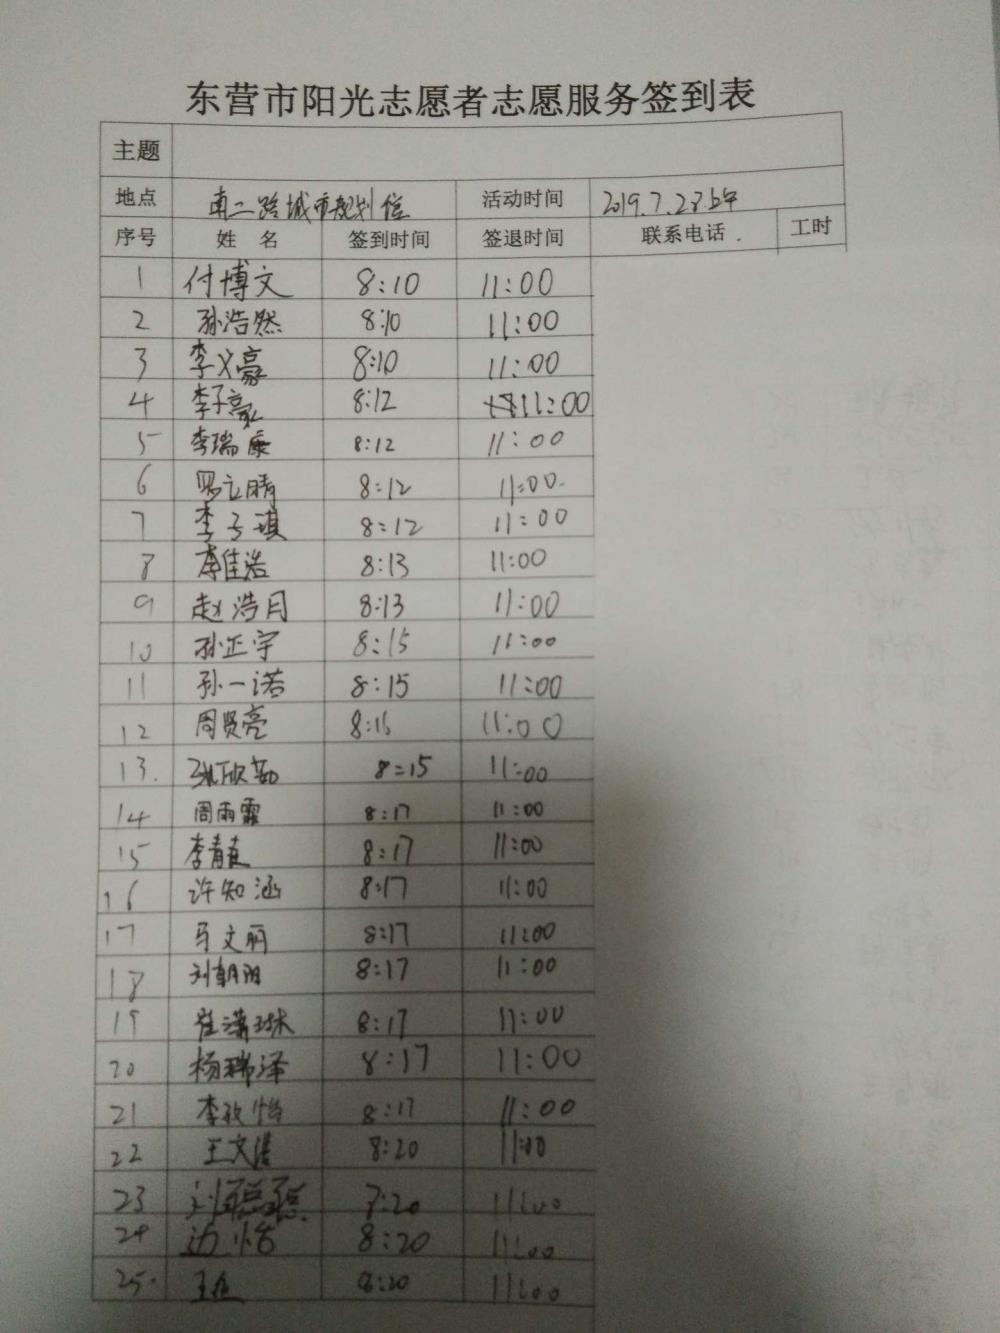 东营市阳光志愿者志愿服务签到表
主题
地点 南二路城市规划位 活动时间 2019.7.28上午
序号 姓名 签到时间 签退时间 联系电话 工时
1 付博文 8:10 11:00
2 孙浩然 8:10 11:00
3 李义豪 8:10 11:00
4 李子豪 8:12 11:00
5 李瑞康 8:12 11:00
6 罗立晴 8:12 11:00
7 李子琪 8:12 11:00
8 李佳浩 8:13 11:00
9 赵浩月 8:13 11:00
10 孙正宇 8:15 11:00
11 孙一诺 8:15 11:00
12 周贤亮 8:15 11:00
13. 8:15 11:00
14 周雨霏 8:17 11:00
15 李青直 8:17 11:00
16 许知涵 8:17 11:00
17 马文丽 8:17 11:00
18 刘朝阳 8:17 11:00
19 崔潇琳 8:17 11:00
20 杨瑞泽 8:17 11:00
21 李孜怡 8:17 11:00
22 王文 8:20 11:00
23 刘聪聪 8:20 11:00
24 边怡 8:20 11:00
25. 8:20 11:00